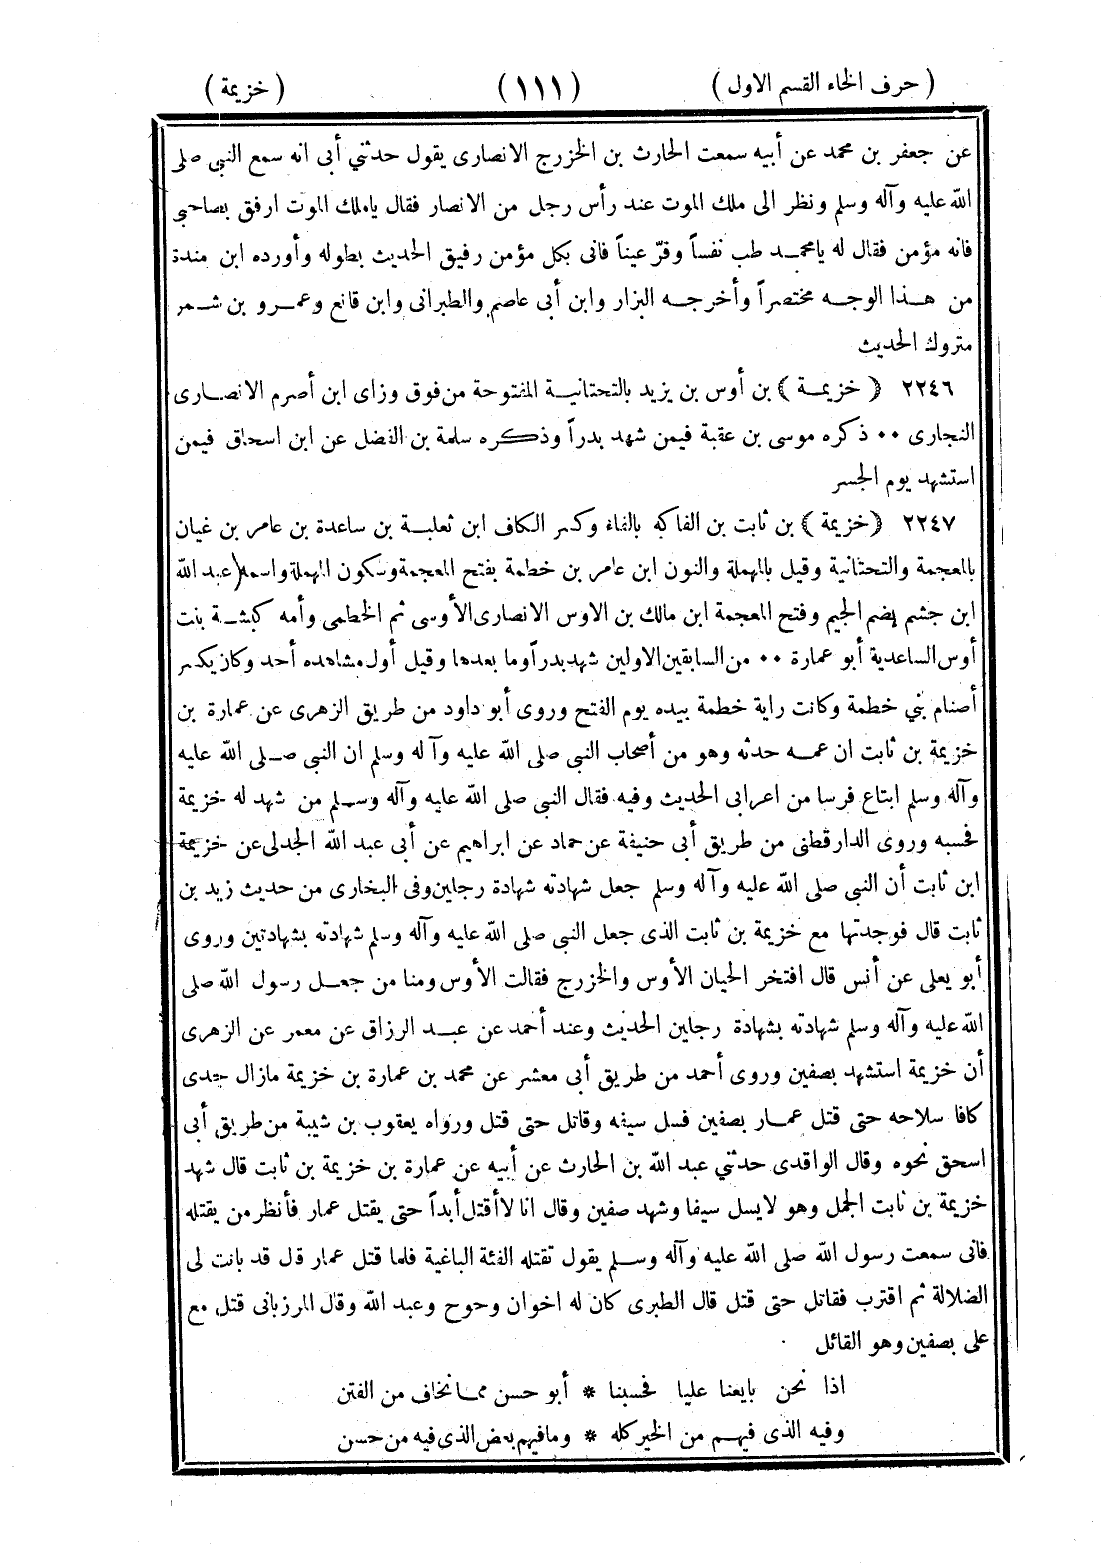 ( حرف الخاء القسم الاول ) ( ١١١ ) ( خزيمة )
عن جعفر بن محمد عن أبيه سمعت الحارث بن الخزرج الانصارى يقول حدثني أبى انه سمع النبي صلى
الله عليه وآله وسلم ونظر الى ملك الموت عند رأس رجل من الانصار فقال ياملك الموت ارفق بصاحبي
فانه مؤمن فقال له يامحمد طب نفساً وقرّ عيناً فانى بكل مؤمن رفيق الحديث بطوله وأورده ابن مندة
من هذا الوجه مختصراً وأخرجه البزار وابن أبى عاصم والطبرانى وابن قانع وعمرو بن شمر
متروك الحديث
٢٢٤٦ ﴿ خزيمة ﴾ بن أوس بن يزيد بالتحتانية المفتوحة من فوق وزاى ابن أصرم الانصارى
النجارى ٠٠ ذكره موسى بن عقبة فيمن شهد بدراً وذكره سلمة بن الفضل عن ابن اسحاق فيمن
استشهد يوم الجسر
٢٢٤٧ ﴿ خزيمة ﴾ بن ثابت بن الفاكه بالفاء وكسر الكاف ابن ثعلبة بن ساعدة بن عامر بن غيان
بالمعجمة والتحتانية وقيل بالمهملة والنون ابن عامر بن خطمة بفتح المعجمة وسكون المهملة واسمه (عبد الله
ابن جشم بضم الجيم وفتح المعجمة ابن مالك بن الاوس الانصارى الأوسى ثم الخطمى وأمه كبشة بنت
أوس الساعدية أبو عمارة ٠٠ من السابقين الاولين شهد بدراً وما بعدها وقيل أول مشاهده أحد وكان يكسر
أصنام بني خطمة وكانت راية خطمة بيده يوم الفتح وروى أبو داود من طريق الزهرى عن عمارة بن
خزيمة بن ثابت ان عمه حدثه وهو من أصحاب النبي صلى الله عليه وآله وسلم ان النبي صلى الله عليه
وآله وسلم ابتاع فرسا من اعرابى الحديث وفيه فقال النبي صلى الله عليه وآله وسلم من شهد له خزيمة
فحسبه وروى الدارقطنى من طريق أبى حنيفة عن حماد عن ابراهيم عن أبى عبد الله الجدلى عن خزيمة
ابن ثابت أن النبي صلى الله عليه وآله وسلم جعل شهادته شهادة رجلين وفى البخارى من حديث زيد بن
ثابت قال فوجدتها مع خزيمة بن ثابت الذى جعل النبي صلى الله عليه وآله وسلم شهادته بشهادتين وروى
أبو يعلى عن أنس قال افتخر الحيان الأوس والخزرج فقالت الأوس ومنا من جعل رسول الله صلى
الله عليه وآله وسلم شهادته بشهادة رجلين الحديث وعند أحمد عن عبد الرزاق عن معمر عن الزهرى
أن خزيمة استشهد بصفين وروى أحمد من طريق أبى معشر عن محمد بن عمارة بن خزيمة مازال جدى
كافا سلاحه حتى قتل عمار بصفين فسل سيفه وقاتل حتى قتل ورواه يعقوب بن شيبة من طريق أبى
اسحق نحوه وقال الواقدى حدثني عبد الله بن الحارث عن أبيه عن عمارة بن خزيمة بن ثابت قال شهد
خزيمة بن ثابت الجمل وهو لايسل سيفا وشهد صفين وقال انا لا أقتل أبداً حتى يقتل عمار فأنظر من يقتله
فانى سمعت رسول الله صلى الله عليه وآله وسلم يقول تقتله الفئة الباغية فلما قتل عمار قال قد بانت لى
الضلالة ثم اقترب فقاتل حتى قتل قال الطبرى كان له اخوان وحوح وعبد الله وقال المرزبانى قتل مع
على بصفين وهو القائل
اذا نحن بايعنا عليا فحسبنا * أبو حسن مما نخاف من الفتن
وفيه الذى فيهم من الخير كله * ومافيهم بعض الذى فيه من حسن